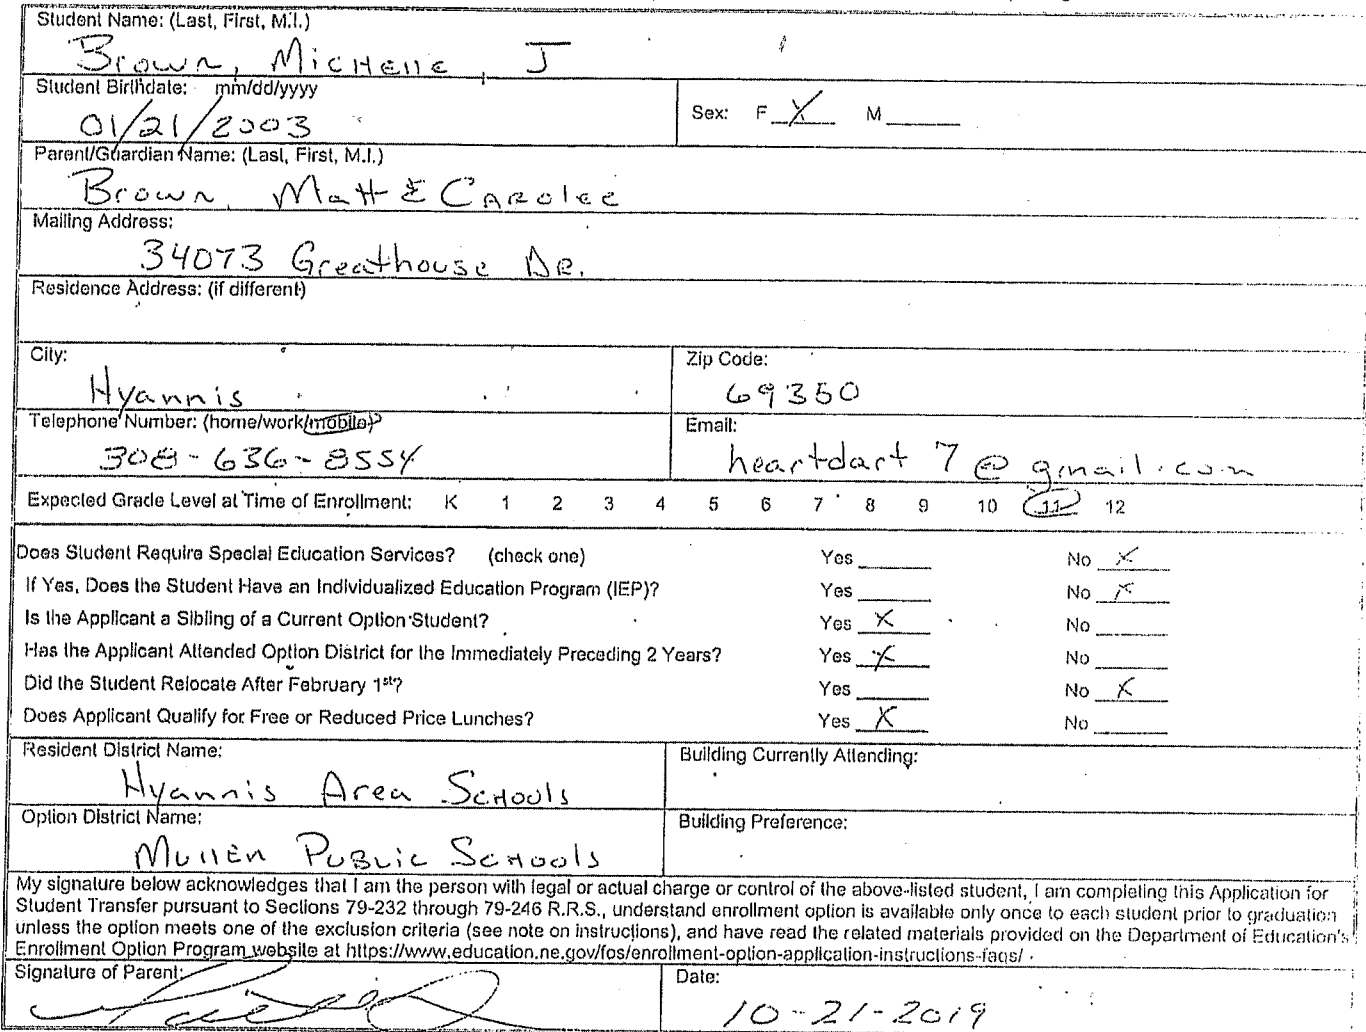 Student Name: (Last, First, M.I.)
Brown, Michelle, J
Student Birthdate: mm/dd/yyyy
01/21/2003
Sex: F X M
Parent/Guardian Name: (Last, First, M.I.)
Brown, Matt & Carolee
Mailing Address:
34073 Greathouse Dr.
Residence Address: (if different)
City:
Hyannis
Zip Code:
69350
Telephone Number: (home/work/mobile)
308-636-8554
Email:
heartdart7@gmail.com
Expected Grade Level at Time of Enrollment: K 1 2 3 4 5 6 7 8 9 10 11 12
Does Student Require Special Education Services? (check one) Yes No X
If Yes, Does the Student Have an Individualized Education Program (IEP)? Yes No X
Is the Applicant a Sibling of a Current Option Student? Yes X No
Has the Applicant Attended Option District for the Immediately Preceding 2 Years? Yes X No
Did the Student Relocate After February 1st? Yes No X
Does Applicant Qualify for Free or Reduced Price Lunches? Yes X No
Resident District Name:
Hyannis Area Schools
Building Currently Attending:
Option District Name:
Mullen Public Schools
Building Preference:
My signature below acknowledges that I am the person with legal or actual charge or control of the above-listed student, I am completing this Application for
Student Transfer pursuant to Sections 79-232 through 79-246 R.R.S., understand enrollment option is available only once to each student prior to graduation
unless the option meets one of the exclusion criteria (see note on instructions), and have read the related materials provided on the Department of Education's
Enrollment Option Program website at https://www.education.ne.gov/fos/enrollment-option-application-instructions-faqs/.
Signature of Parent:
Date:
10-21-2019